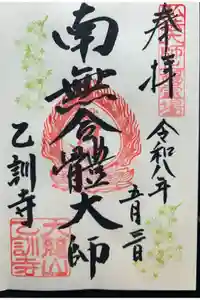 奉拝
令和八年
五月三日
南無合體大師
乙訓寺
大慈山
乙訓寺